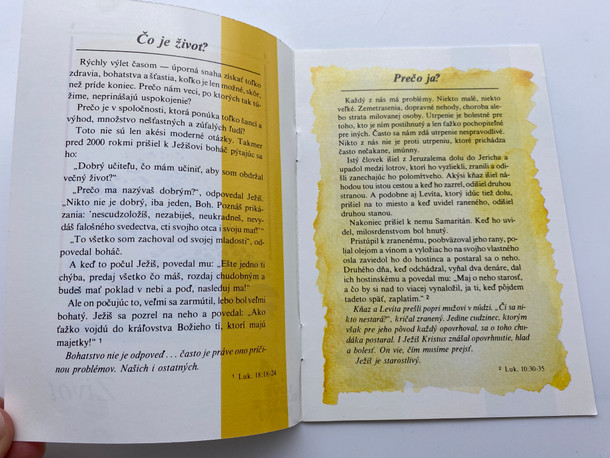 Čo je život?
Rýchly výlet časom — úporná snaha získať toľko
zdravia, bohatstva a šťastia, koľko je len možné, skôr,
než príde koniec. Prečo nám veci, po ktorých tak tú-
žime, neprinášajú uspokojenie?
Prečo je v spoločnosti, ktorá ponúka toľko šancí a
výhod, množstvo nešťastných a zúfalých ľudí?
Toto nie sú len akési moderné otázky. Takmer
pred 2000 rokmi prišiel k Ježišovi boháč pýtajúc sa
ho:
„Dobrý učiteľu, čo mám učiniť, aby som obdržal
večný život?"
„Prečo ma nazývaš dobrým?", odpovedal Ježiš.
„Nikto nie je dobrý, iba jeden, Boh. Poznáš priká-
zania: ´nescudzoložíš, nezabiješ, neukradneš, nevy-
dáš falošného svedectva, cti svojho otca i svoju mať!'"
„To všetko som zachoval od svojej mladosti", od-
povedal boháč.
A keď to počul Ježiš, povedal mu: „Ešte jedno ti
chýba, predaj všetko čo máš, rozdaj chudobným a
budeš mať poklad v nebi a poď, nasleduj ma!"
Ale on počujúc to, veľmi sa zarmútil, lebo bol veľmi
bohatý. Ježiš sa pozrel na neho a povedal: „Ako
ťažko vojdú do kráľovstva Božieho tí, ktorí majú
majetky!" ¹
Bohatstvo nie je odpoveď . . . často je práve ono príči-
nou problémov. Našich i ostatných.
¹ Luk. 18:18-24
Prečo ja?
Každý z nás má problémy. Niekto malé, niekto
veľké. Zemetrasenia, dopravné nehody, choroba ale-
bo strata milovanej osoby. Utrpenie je bolestné pre
toho, kto je ním postihnutý a len ťažko pochopiteľné
pre iných. Často sa nám zdá utrpenie nespravodlivé.
Nikto z nás nie je proti utrpeniu, ktoré prichádza
často nečakane, imúnny.
Istý človek išiel z Jeruzalema dolu do Jericha a
upadol medzi lotrov, ktorí ho vyzliekli, zranili a odi-
šli zanechajúc ho polomŕtveho. Akýsi kňaz išiel ná-
hodou tou istou cestou a keď ho zazrel, odišiel druhou
stranou. A podobne aj Levita, ktorý idúc tiež dolu,
prišiel na to miesto a keď videl zraneného, odišiel
druhou stanou.
Nakoniec prišiel k nemu Samaritán. Keď ho uvi-
del, milosrdenstvom bol hnutý.
Pristúpil k zranenému, poobväzoval jeho rany, po-
lial olejom a vínom a vyložiac ho na svojho vlastného
osla zaviedol ho do hostinca a postaral sa o neho.
Druhého dňa, keď odchádzal, vyňal dva denáre, dal
ich hostinskému a povedal mu: „Maj o neho starosť,
a čo by si nad to viacej vynaložil, ja ti, keď pôjdem
tadeto späť, zaplatím." ²
Kňaz a Levita prešli popri mužovi v núdzi. „Či sa ni-
kto nestará?", kričal zranený. Jedine cudzinec, ktorým
však pre jeho pôvod každý opovrhoval, sa o toho chu-
dáka postaral. I Ježiš Kristus znášal opovrhnutie, hlad
a bolesť. On vie, čím musíme prejsť.
Ježiš je starostlivý.
² Luk. 10:30-35